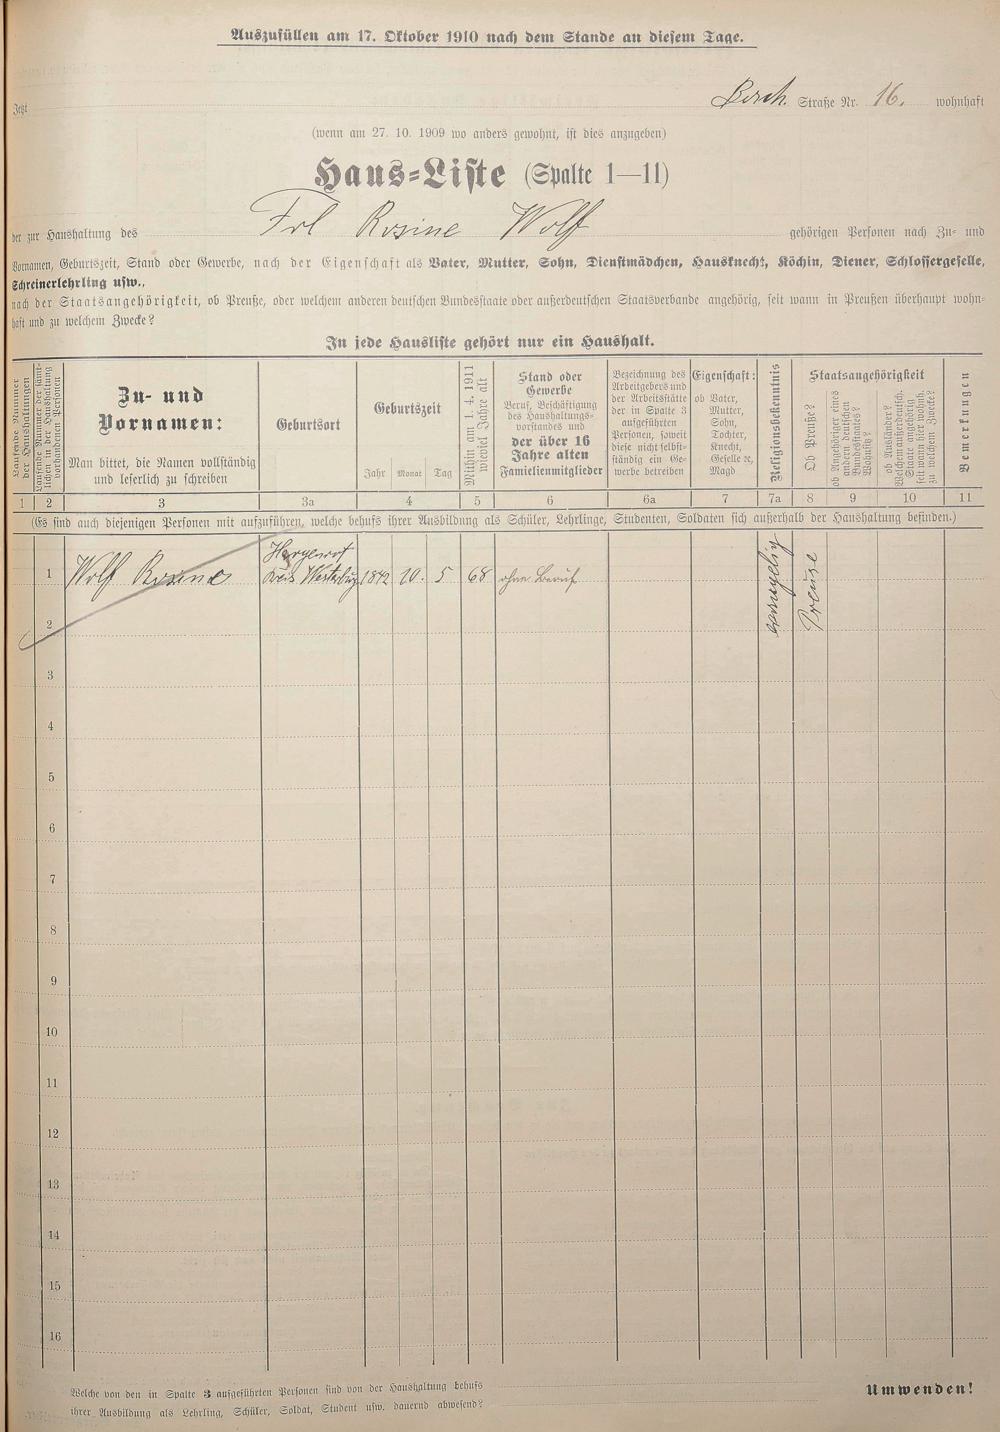 Auszufüllen am 17. Oktober 1910 nach dem Stande an diesem Tage.
Jetzt Straße Nr. 16. wohnhaft
(wenn am 27. 10. 1909 wo anders gewohnt, ist dies anzugeben)
Haus-Liste (Spalte 1—11)
der zur Haushaltung des Frl Rosine Wolf gehörigen Personen nach Zu- und
Vornamen, Geburtszeit, Stand oder Gewerbe, nach der Eigenschaft als Vater, Mutter, Sohn, Dienstmädchen, Hausknecht, Köchin, Diener, Schlossergeselle,
Schreinerlehrling usw.,
nach der Staatsangehörigkeit, ob Preuße, oder welchem anderen deutschen Bundesstaate oder außerdeutschen Staatsverbande angehörig, seit wann in Preußen überhaupt wohn-
haft und zu welchem Zwecke?
In jede Hausliste gehört nur ein Haushalt.
Laufende Nummer
der Haushaltungen
Laufende Nummer der sämt-
lichen in der Haushaltung
vorhandenen Personen
Zu- und
Vornamen:
Man bittet, die Namen vollständig
und leserlich zu schreiben
Geburtsort
Geburtszeit
Jahr Monat Tag
Mithin am 1. 4. 1911
wieviel Jahre alt
Stand oder
Gewerbe
Beruf, Beschäftigung
des Haushaltungs-
vorstandes und
der über 16
Jahre alten
Familienmitglieder
Bezeichnung des
Arbeitgebers und
der Arbeitsstätte
der in Spalte 3
aufgeführten
Personen, soweit
diese nicht selbst-
ständig ein Ge-
werbe betreiben
Eigenschaft:
ob Vater,
Mutter,
Sohn,
Tochter,
Knecht,
Geselle ec.
Magd
Religionsbekenntnis
Staatsangehörigkeit
Ob Preuße?
ob Angehöriger eines
andern deutschen
Bundesstaates?
Wohnsitz?
ob Ausländer?
Welchem außerdeutsch.
Staate angehörig
seit wann hier wohnh.
zu welchem Zwecke?
Bemerkungen
1 2 3 3a 4 5 6 6a 7 7a 8 9 10 11
(Es sind auch diejenigen Personen mit aufzuführen, welche behufs ihrer Ausbildung als Schüler, Lehrlinge, Studenten, Soldaten sich außerhalb der Haushaltung befinden.)
1 Wolf Rosine Kreis Westerburg 1842 10. 5 68 ohne Beruf evangelisch Preuße
2
3
4
5
6
7
8
9
10
11
12
13
14
15
16
Welche von den in Spalte 3 aufgeführten Personen sind von der Haushaltung behufs
ihrer Ausbildung als Lehrling, Schüler, Soldat, Student usw. dauernd abwesend?
Umwenden!